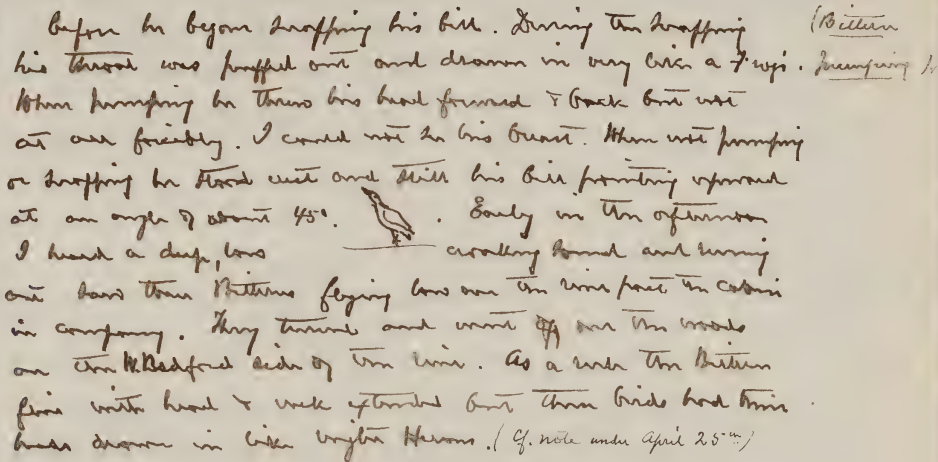 before he began snapping his bill. During the snapping (Bittern
his throat was puffed out and drawn in very like a Frog's. pumping
When pumping he threw his head forward & back but not
at all forcibly. I could not see his breast. When not pumping
or snapping he stood erect and still his bill pointing upward
at an angle of about 45°. Early in the afternoon
I heard a deep, low croaking sound and running
out saw three Bitterns flying low over the river past the cabin
in company. They turned and went off over the woods
on the W. Bedford side of the river. As a rule the Bittern
flies with head & neck extended but these birds had their
heads drawn in like Night Herons. (Cf. note under April 25th)